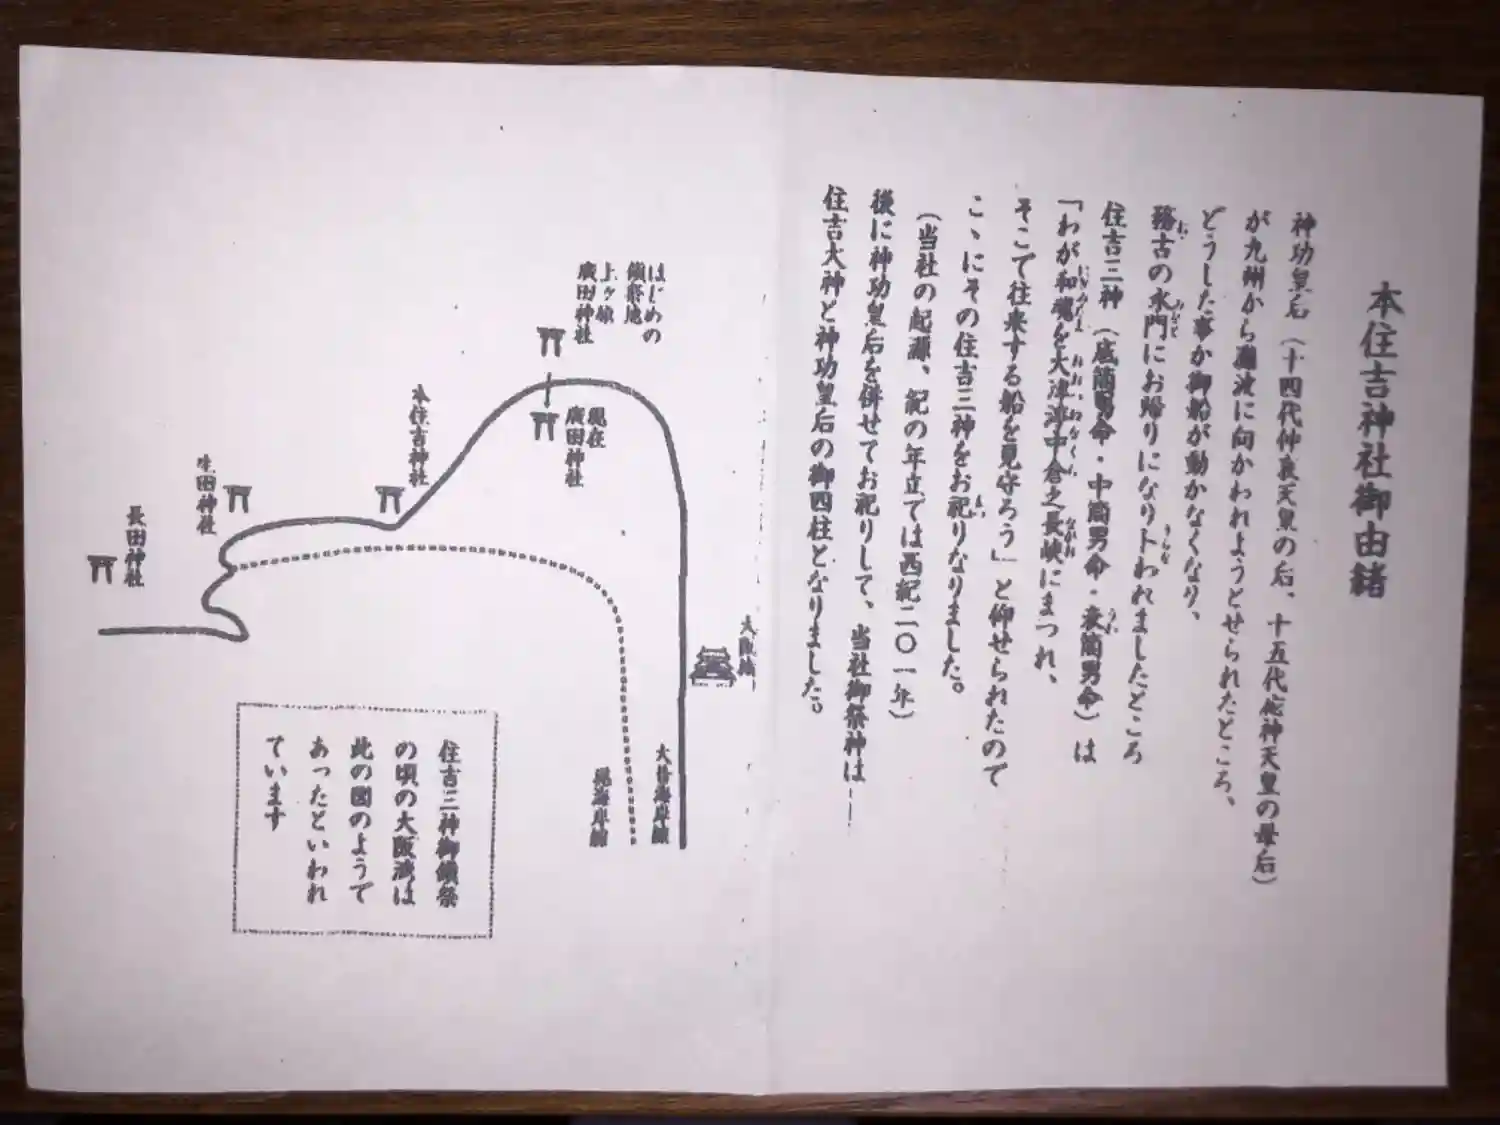 本住吉神社御由緒
神功皇后（十四代仲哀天皇の后、十五代応神天皇の母后）
が九州から難波に向かわれようとせられたところ、
どうした事か御船が動かなくなり、
務古の水門にお帰りになりトわれましたところ
住吉三神（底筒男命・中筒男命・表筒男命）は
「わが和魂を大津渟中倉之長峡にまつれ、
そこで往来する船を見守ろう」と仰せられたので
こゝにその住吉三神をお祀りなりました。
（当社の起源、紀の年立では西紀二〇一年）
後に神功皇后を併せてお祀りして、当社御祭神は―
住吉大神と神功皇后の御四柱となりました。
はじめの
鎮祭地
上ヶ原
廣田神社
現在
廣田神社
本住吉神社
生田神社
長田神社
大阪城
大昔海岸線
現海岸線
住吉三神御鎮祭
の頃の大阪湾は
此の図のようで
あったといわれ
ています